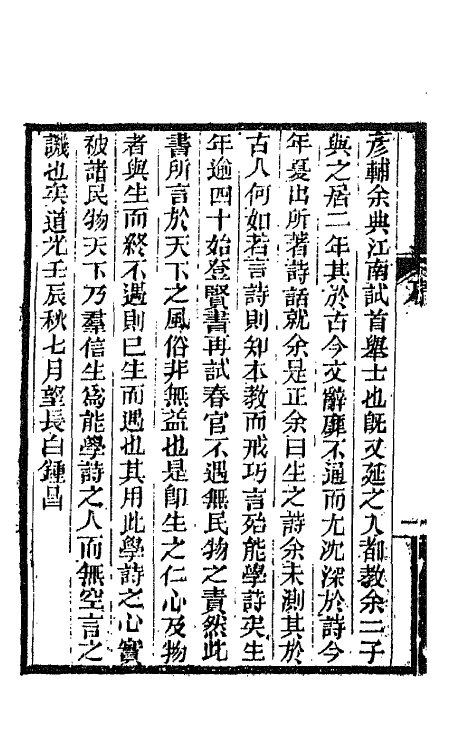 彥輔余典江南試首舉士也旣又延之入都教余二子
與之居二年其於古今文辭靡不通而尤沈深於詩今
年夏出所著詩話就余是正余曰生之詩余未測其於
古人何如若言詩則知本教而戒巧言殆能學詩矣生
年逾四十始登賢書再試春官不遇無民物之責然此
書所言於天下之風俗非無益也是卽生之仁心及物
者與生而終不遇則已生而遇也其用此學詩之心實
被諸民物天下乃羣信生爲能學詩之人而無空言之
譏也矣道光壬辰秋七月望長白鍾昌